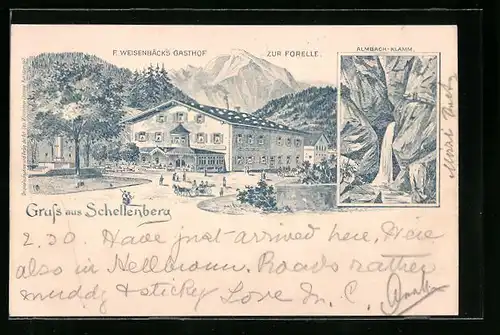 F. WEISENBÄCK'S GASTHOF ZUR FORELLE.
ALMBACH-KLAMM.
Gruß aus Schellenberg
2.30. Have just arrived here, Were
also in Hellbrunn. Roads rather
muddy & sticky Love